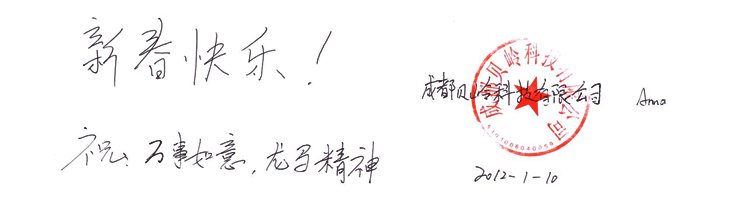 新春快乐！
祝：万事如意，龙马精神
成都贝岭科技有限公司 Ama
成都贝岭科技有限公司
2012-1-10